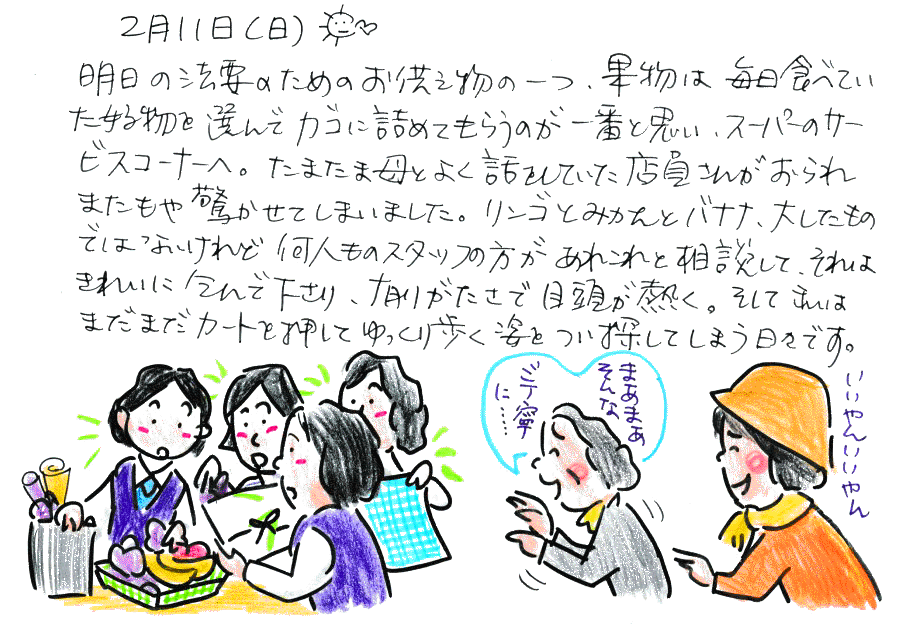 2月11日(日)
明日の法要のためのお供え物の一つ、果物は 毎日食べてい
た好物を 選んで カゴに詰めてもらうのが 一番と思い、スーパーのサー
ビスコーナーへ。たまたま母とよく話をしていた店員さんが おられ
またもや 驚かせてしまいました。リンゴとみかんとバナナ、大したもの
ではないけれど 何人ものスタッフの方が あれこれと相談して、それは
きれいに 包んで下さり、有りがたさで 目頭が熱く。そして私は
まだまだカートを押してゆっくり歩く姿を つい探してしまう日々です。
まあまあ
そんな
ご丁寧
に…
いいやんいいやん